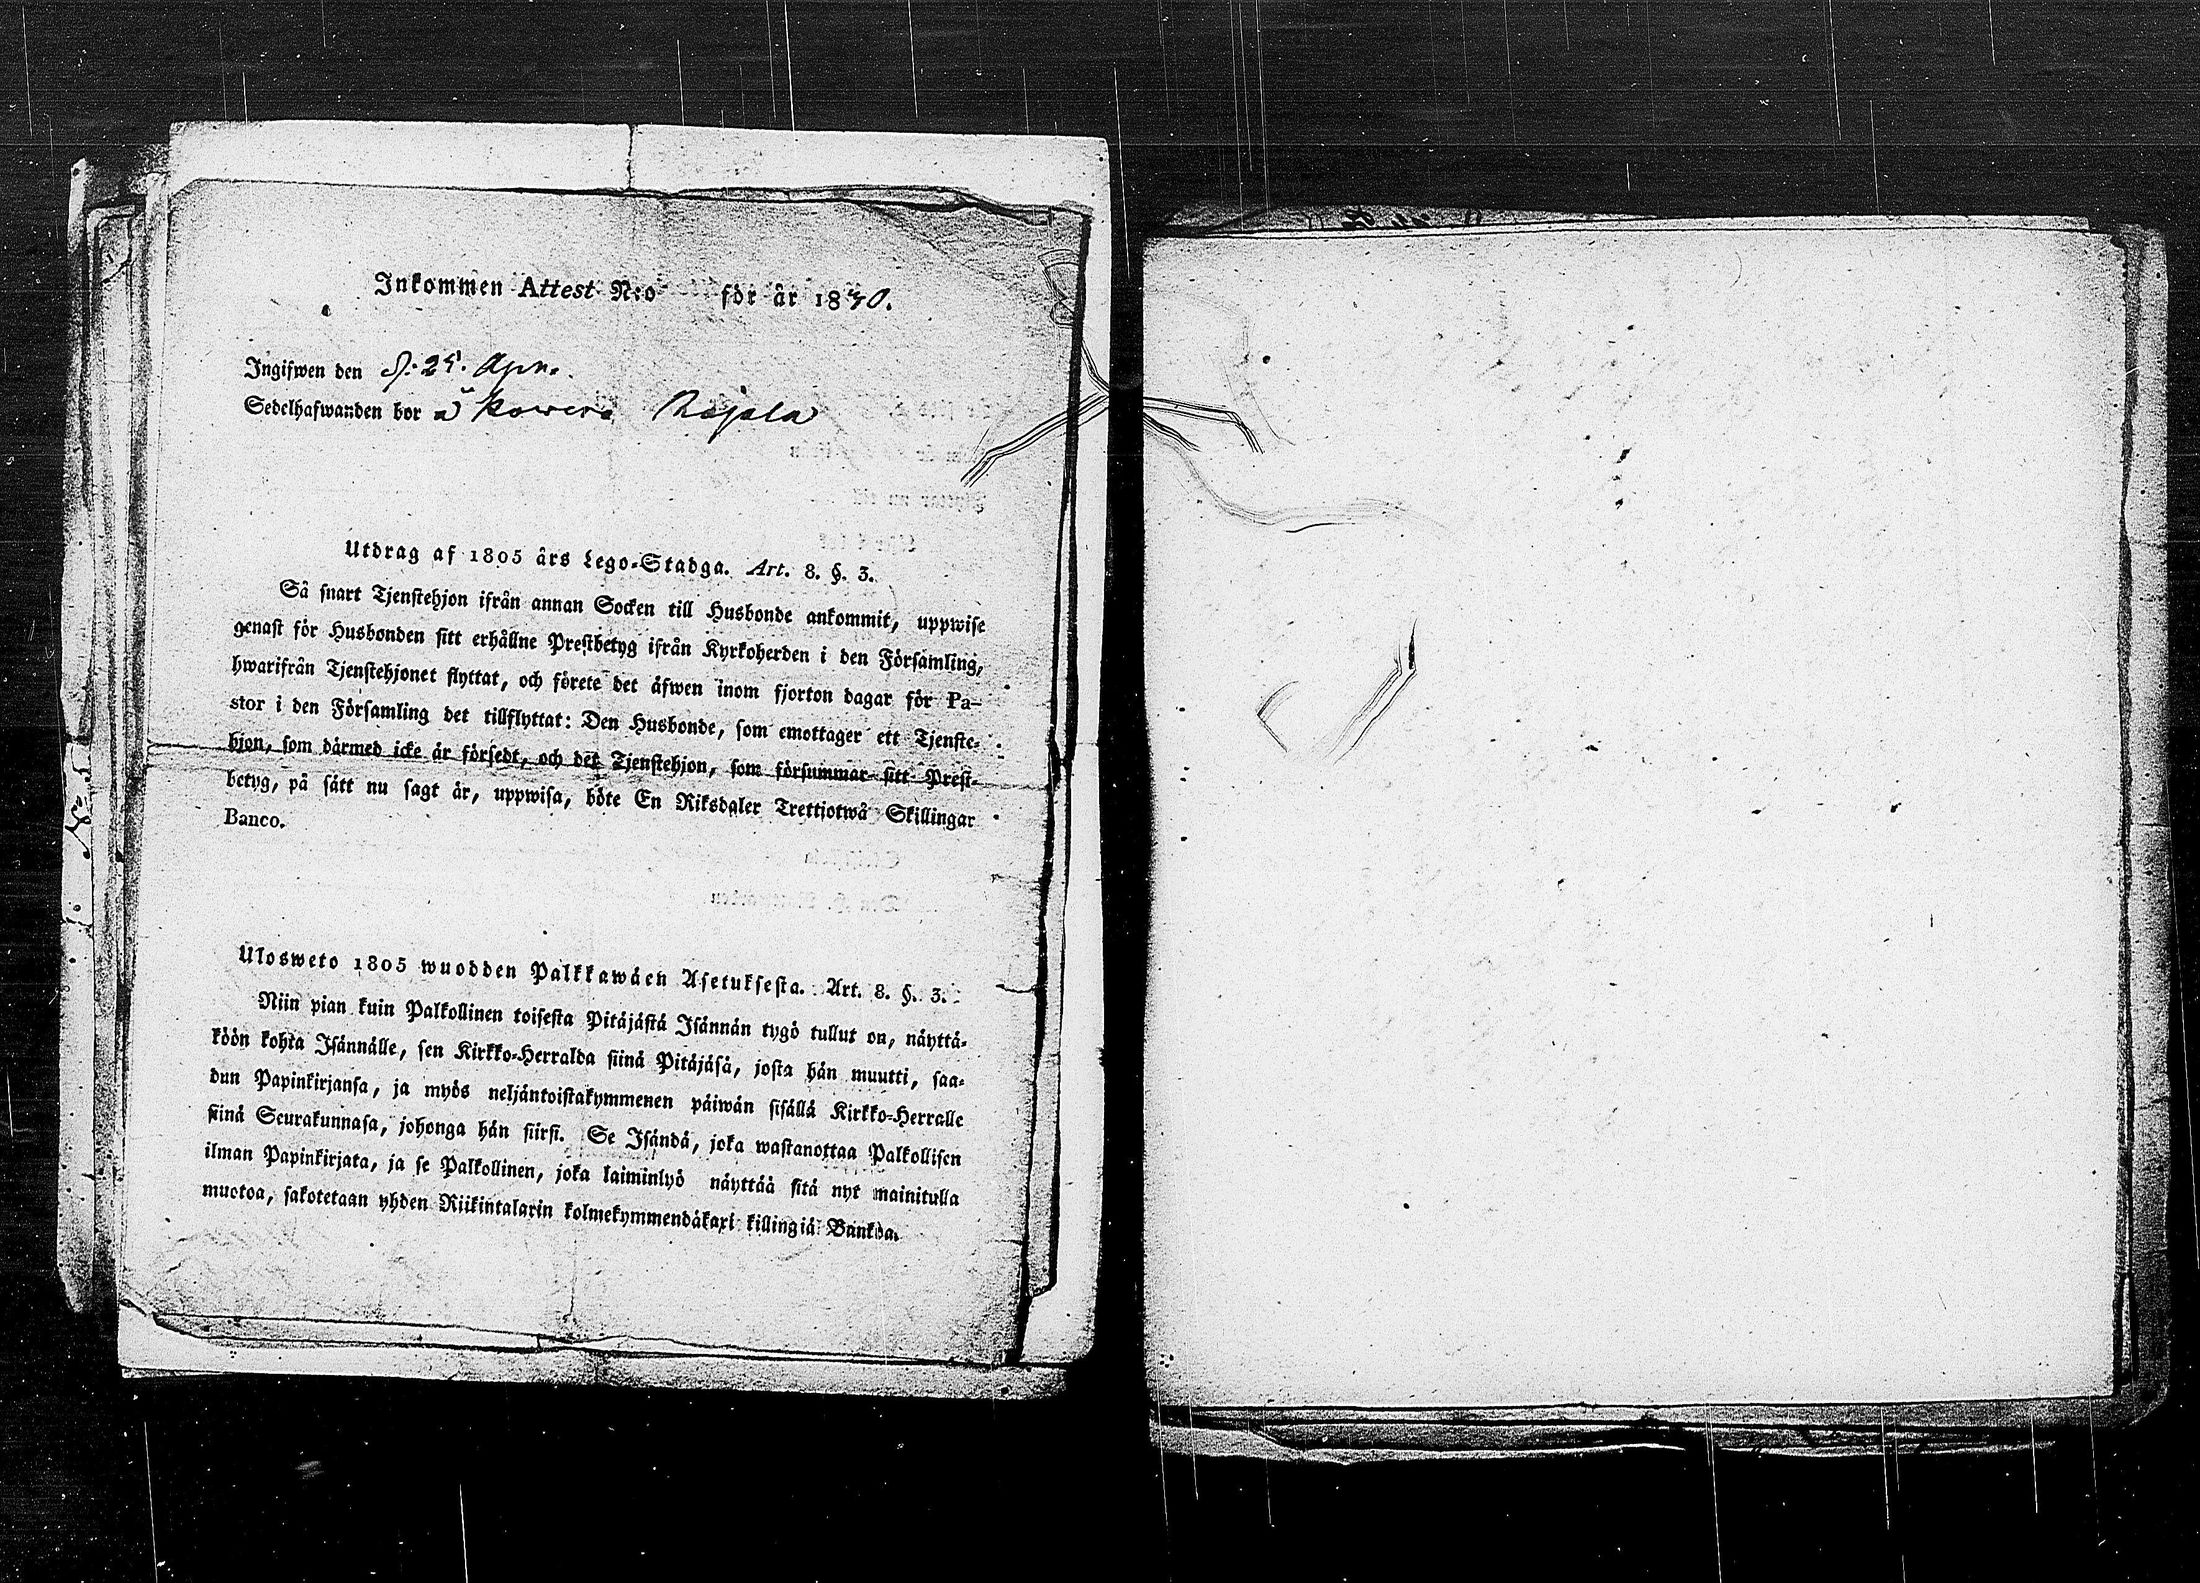 Inkommen Attest N:o för år 1840.
Ingifwen den d. 25. Apr.
Sedelhafwanden bor å Rajala
Utdrag af 1805 års Lego-Stadga. Art. 8. §. 3.
Så snart Tjenstehjon ifrån annan Socken till Husbonde ankommit, uppwise
genast för Husbonden sitt erhållne Prestbetyg ifrån Kyrkoherden i den Församling,
hwarifrån Tjenstehjonet flyttat, och förete det äfwen inom fjorton dagar för Pa-
stor i den Församling det tillflyttat: Den Husbonde, som emottager ett Tjenste-
hjon, som därmed icke är försedt, och det Tjenstehjon, som försummar sitt Prest-
betyg, på sätt nu sagt är, uppwisa, böte En Riksdaler Trettiotwå Skillingar
Banco.
Ulosweto 1805 wuodden Palkkawäen Asetuksesta. Art. 8. §. 3.
Niin pian kuin Palkollinen toisesta Pitäjästä Isännän tygö tullut on, näyttä-
köön kohta Isännälle, sen Kirkko-Herralda siinä Pitäjäsä, josta hän muutti, saa-
dun Papinkirjansa, ja myös neljäntoistakymmenen päiwän sisällä Kirkko-Herralle
siinä Seurakunnasa, johonga hän siirsi. Se Isändä, joka wastanottaa Palkollisen
ilman Papinkirjata, ja se Palkollinen, joka laiminlyö näyttää sitä nyt mainitulla
muotoa, sakotetaan yhden Riikintalarin kolmekymmendäkaxi killingiä Bankoa.